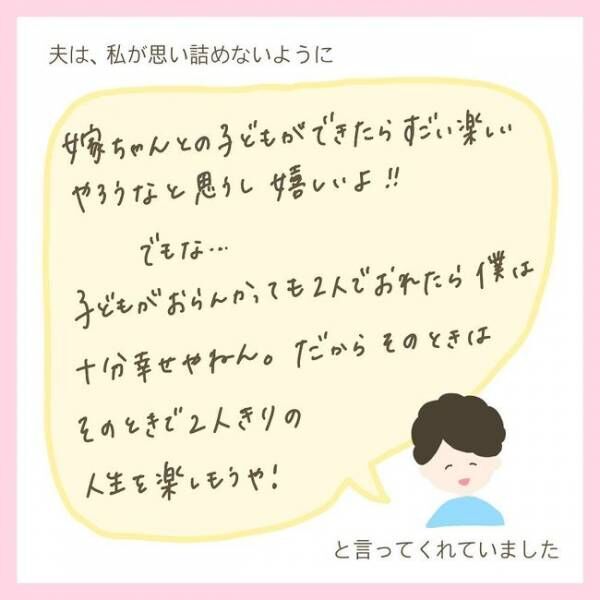 夫は、私が思い詰めないように
嫁ちゃんとの子どもができたらすごい楽しい
やろうなと思うし嬉しいよ!!
でもな…
子どもがおらんかっても2人でおれたら僕は
十分幸せやねん。だからそのときは
そのときで2人きりの
人生を楽しもうや!
と言ってくれていました